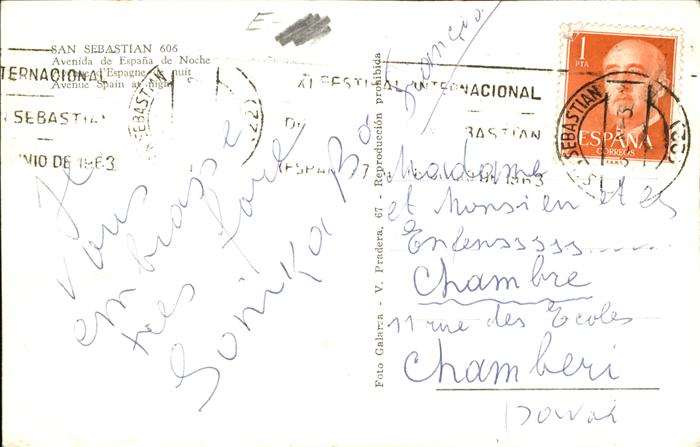 E-
SAN SEBASTIAN 606
Avenida de España de Noche
d'Espagne de nuit
Avenue Spain at night
TERNACIONAL
SEBASTIAN
NIO DE 1963
SEBASTIAN
XI FESTIVAL INTERNACIONAL
DE
SEBASTIAN
1963
1
PTA
ESPAÑA
CORREOS
SEBASTIAN
Je
vous
embrasse
très fort
Sonika
Foto Galarza - V. Pradera, 67 - Reproducción prohibida
Madame
et Monsieur et es
Enfensssss
Chambre
11 rue des Ecoles
Chamberi